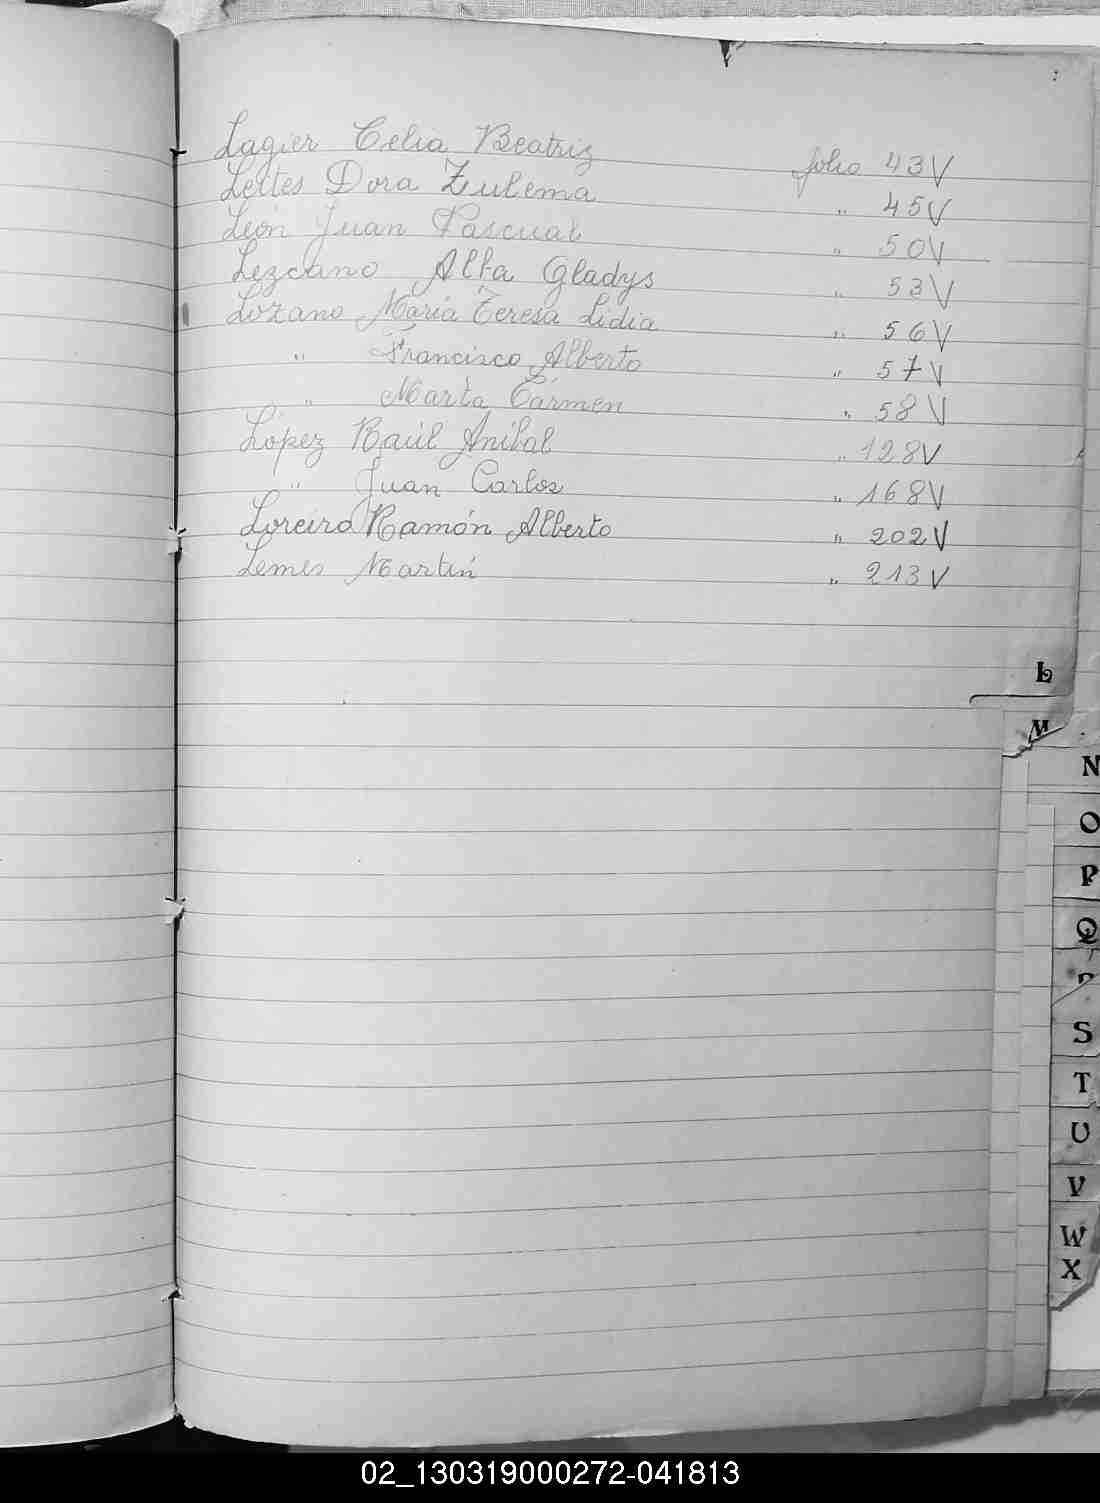 Lagier Celia Beatriz folio 43V
Leites Dora Zulema " 45V
León Juan Pascual " 50V
Lezcano Alba Gladys " 53V
Lozano María Teresa Lidia " 56V
" Francisco Alberto " 57V
" Marta Carmen " 58V
López Raúl Aníbal " 128V
" Juan Carlos " 168V
Loreiro Ramón Alberto " 202V
Lemes Martín " 213V
L
M
N
O
P
Q
S
T
U
V
W
X
02_130319000272-041813